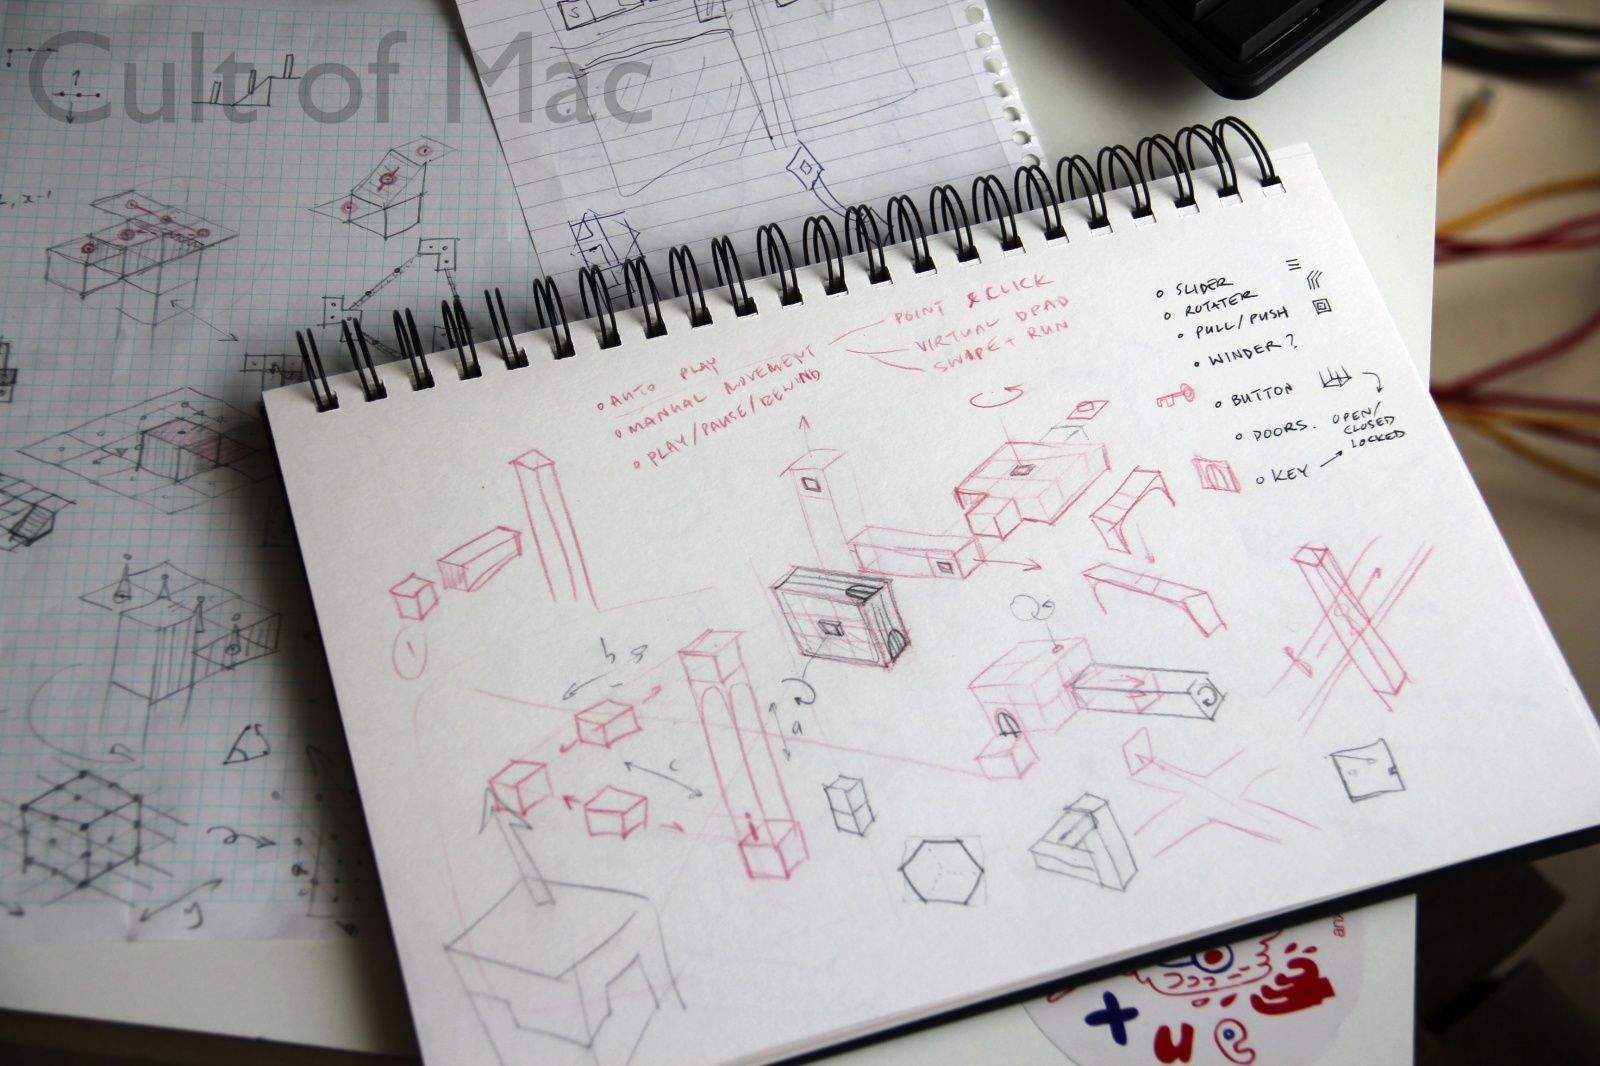 Cult of Mac
2, x-1
?
S
POINT & CLICK
VIRTUAL DPAD
SWIPE + RUN
o AUTO PLAY
o MANUAL MOVEMENT
o PLAY/PAUSE/REWIND
o SLIDER
o ROTATER
o PULL/PUSH
o WINDER?
o BUTTON
o DOORS. OPEN/
CLOSED
LOCKED
o KEY
1
y